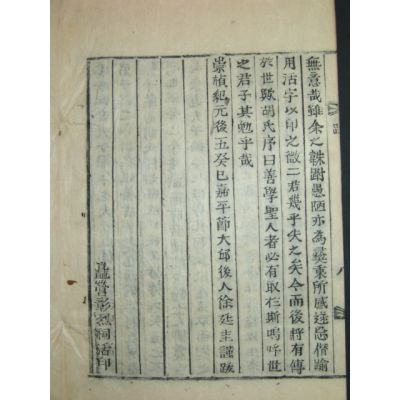 無意哉雖余之韎跗愚陋亦為彛秉所感遂忘僭踰
用活字以印之微二君幾乎失之矣今而後將有傳
於世歟胡氏序曰善學聖人者必有取於斯嗚呼世
之君子其勉乎哉
崇禎紀元後五癸巳嘉平節大邱後人徐廷圭謹跋